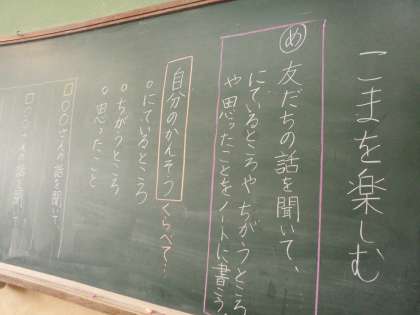 こまを楽しむ
め 友だちの話を聞いて、
にているところや ちがうところ
や思ったことをノートに書こう。
自分のかんそうとくらべて…
○にているところ
○ちがうところ
○思ったこと
□○○さんの話を聞いて
□○○さんの話を聞いて